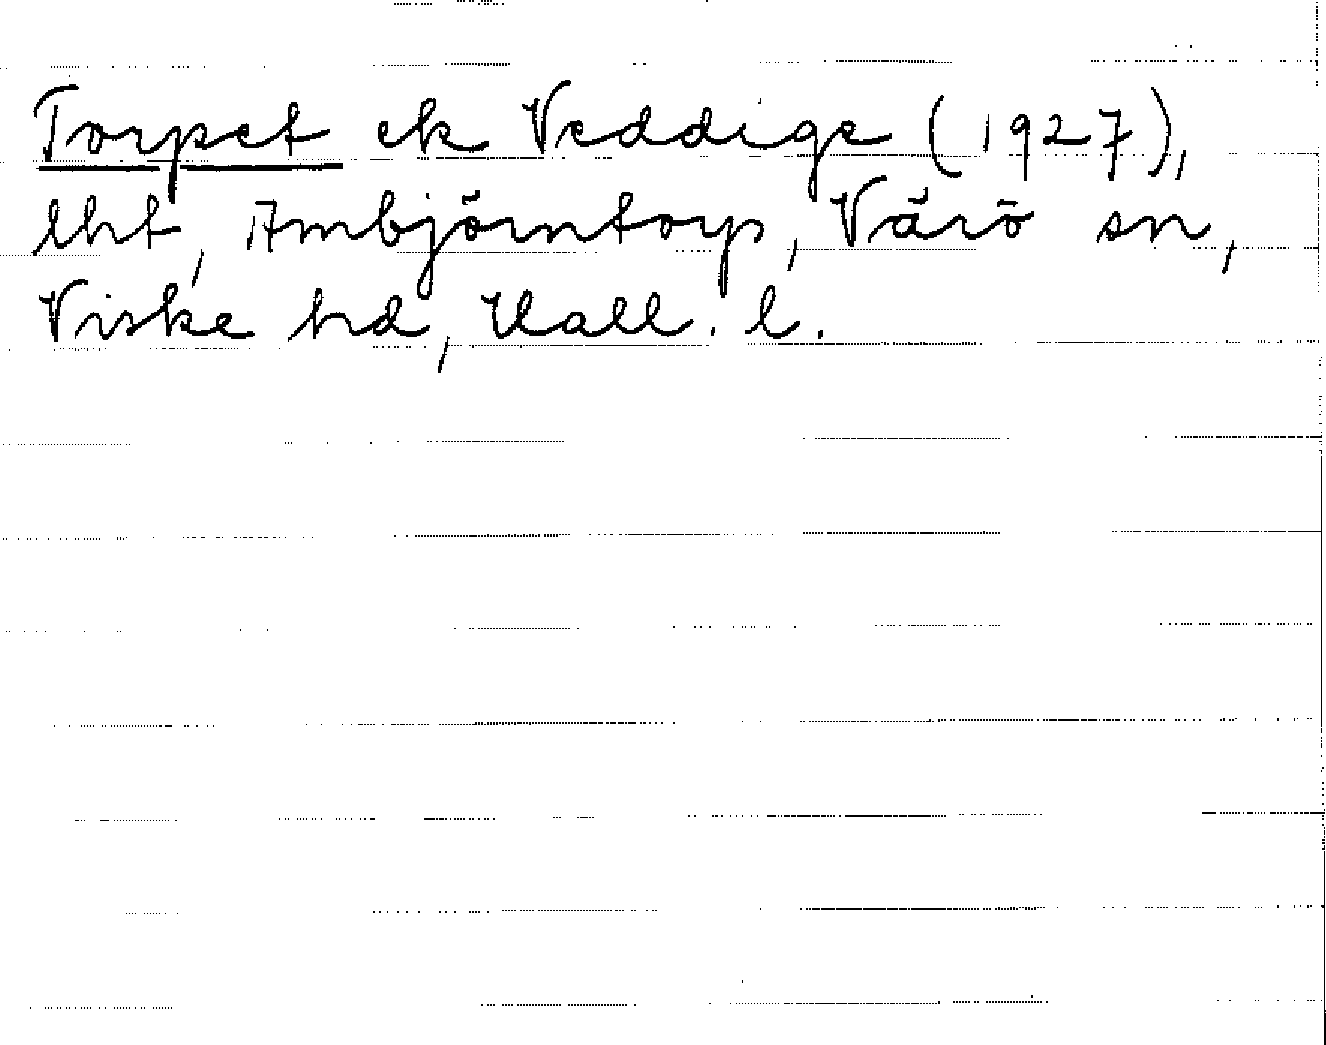 Torpet ek Veddige (1927),
lht, Ambjörntorp, Värö sn,
Viske hd, Hall. l.